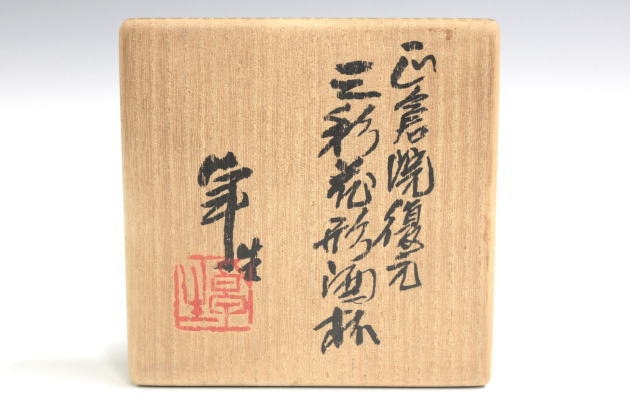 正倉院復元
三彩花形酒杯